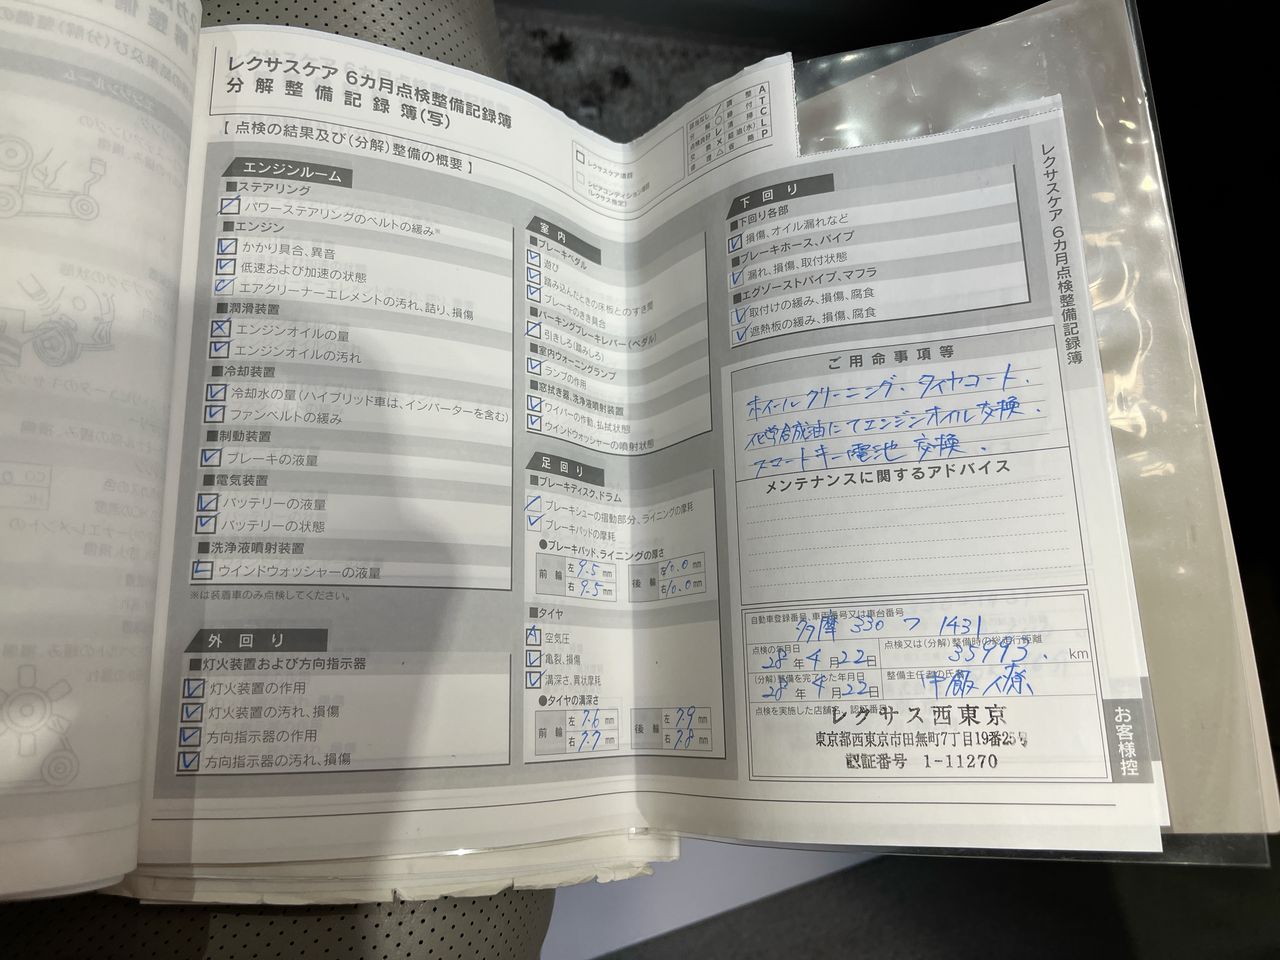 レクサスケア 6カ月点検整備記録簿
分解整備記録簿(写)
【 点検の結果及び(分解)整備の概要 】
レクサスケア項目
調整 A
締付 T
清掃 C
給油(水) L
省略 P
エンジンルーム
■ステアリング
パワーステアリングのベルトの緩み※
■エンジン
かかり具合、異音
低速および加速の状態
エアクリーナーエレメントの汚れ、詰り、損傷
■潤滑装置
エンジンオイルの量
エンジンオイルの汚れ
■冷却装置
冷却水の量(ハイブリッド車は、インバーターを含む)
ファンベルトの緩み
■制動装置
ブレーキの液量
■電気装置
バッテリーの液量
バッテリーの状態
■洗浄液噴射装置
ウインドウォッシャーの液量
※は装着車のみ点検してください。
外回り
■灯火装置および方向指示器
灯火装置の作用
灯火装置の汚れ、損傷
方向指示器の作用
方向指示器の汚れ、損傷
室内
■ブレーキペダル
遊び
踏み込んだときの床板とのすき間
ブレーキのきき具合
■パーキングブレーキレバー(ペダル)
引きしろ(踏みしろ)
■室内ウォーニングランプ
ランプの作用
■窓拭き器、洗浄液噴射装置
ワイパーの作動、払拭状態
ウインドウォッシャーの噴射状態
足回り
■ブレーキディスク、ドラム
ブレーキシューの摺動部分、ライニングの摩耗
ブレーキパッドの摩耗
●ブレーキパッド、ライニングの厚さ
前輪 左 9.5 mm 右 9.5 mm
後輪 左 10.0 mm 右 10.0 mm
■タイヤ
空気圧
亀裂、損傷
溝深さ、異状摩耗
●タイヤの溝深さ
前輪 左 7.6 mm 右 7.7 mm
後輪 左 7.9 mm 右 7.8 mm
下回り
■下回り各部
損傷、オイル漏れなど
■ブレーキホース、パイプ
漏れ、損傷、取付状態
■エグゾーストパイプ、マフラ
取付けの緩み、損傷、腐食
遮熱板の緩み、損傷、腐食
ご用命事項等
ホイールクリーニング・タイヤコート.
化学合成油にてエンジンオイル交換.
スマートキー電池 交換.
メンテナンスに関するアドバイス
自動車登録番号、車両番号又は車台番号
多摩 330 フ 1431
点検の年月日
28年4月22日
点検又は(分解)整備時の総走行距離
35993. km
(分解)整備を完了した年月日
28年4月22日
整備主任者の氏名
点検を実施した店舗名、認証番号
レクサス西東京
東京都西東京市田無町7丁目19番25号
認証番号 1-11270
レクサスケア 6カ月点検整備記録簿
お客様控